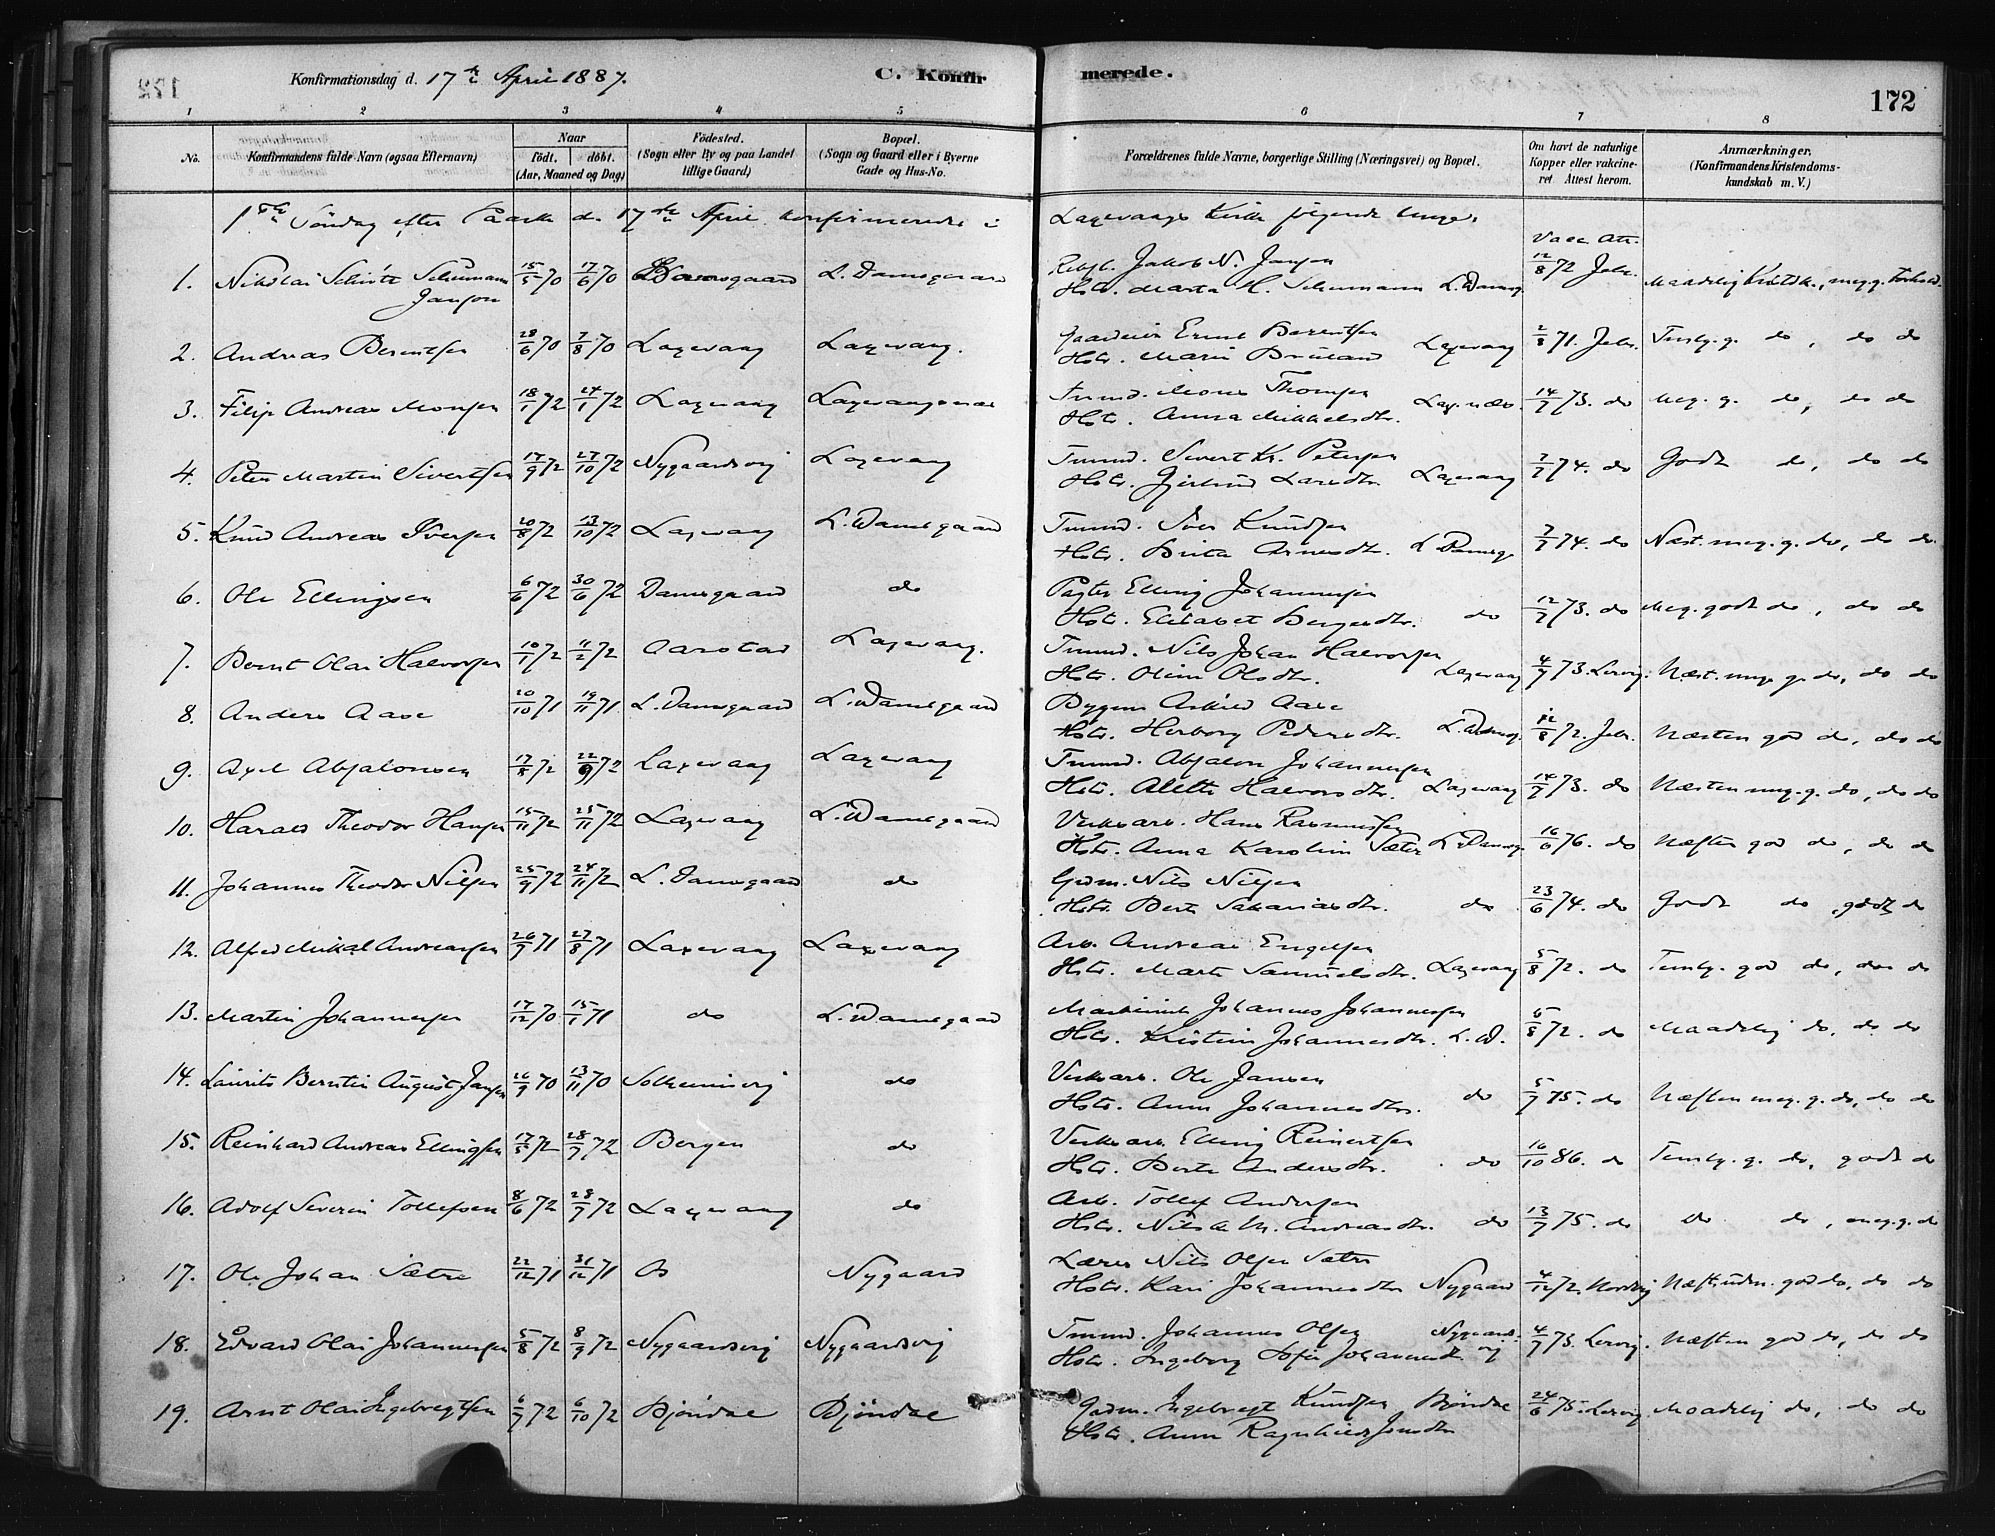 Konfirmationsdag d. 17de April 1887. C. Konfirmerede.
172
1 2 3 4 5 6 7 8
No. Konfirmandens fulde Navn (ogsaa Efternavn) Naar födt. döbt. (Aar, Maaned og Dag) Födested. (Sogn eller By og paa Landet tillige Gaard) Bopæl. (Sogn og Gaard eller i Byerne Gade og Hus-No. Forældrenes fulde Navne, borgerlige Stilling (Næringsvei) og Bopæl. Om havt de naturlige Kopper eller vakcineret Attest herom. Anmærkninger, (Konfirmandens Kristendomskundskab m. V.)
1ste Söndag efter Paaske d. 17de April konfirmerede i Laxevaags Kirke fölgende Unge.
Vacc. Att.
1. Nikolai Schiötz Schumann Janson 15/5 70 17/6 70 Damsgaard L. Damsgaard Rebsl. Jakob N. Janson
Hstr. Marta H. Schumann L. Damsg. 12/8 72 Maadelig Kristdk., meg. g. Forhold.
2. Andreas Berentsen 28/6 70 7/8 70 Laxevaag Laxevaag. Berentsen
Hstr. Marie Laxevaag 2/8 71. do, do do
3. Filip Andreas Monsen 18/1 72 24/1 72 Laxevaag Mons Thomsen
Hstr. Anna Mikkelsdtr. 14/7 73. do Meg. g. do, do do
4. Peter Martin Sivertsen 17/9 72 27/10 72 Nygaardsvig Laxevaag Tmmd. Sivert K. Petersen
Hstr. Gjertrud Larsdtr Laxevaag 7/7 74. do Godt do, do do
5. Knud Andreas Iversen 20/8 72 13/10 72 Laxevaag L. Damsgaard Tmmd. Iver Knudsen
Hstr. Brita Arnesdtr. L Damsg. 7/7 74. do Næst. meg. g. do, do do
6. Ole Ellingsen 6/6 72 30/6 72 Damsgaard do Elling Johannesen
Hstr. Elisabet Bergesdtr. do 12/7 73. do Meg. godt do, do do
7. Bernt Olai Halvorsen 10/1 72 11/2 72 Aarstad Laxevaag. Tmmd. Nils Johan Halvorsen
Hstr. Oline Olsdtr. Laxevaag 4/7 73. Lervig. Næst. meg. g. do, do do
8. Anders Aase 20/10 71 19/11 71 L. Damsgaard L. Damsgaard Aase
Hstr. Herborg Pedersdtr. L. Damsg. 12/8 72. Næsten god do, do do
9. Axel Absalonsen 17/8 72 22/9 72 Laxevaag Laxevaag Tmmd. Absalon Johannesen
Hstr. Alette Halvorsdtr. Laxevaag 14/7 73. do Næsten meg. g. do, do do
10. Harald Theodor Hansen 15/11 72 25/11 72 Laxevaag L. Damsgaard Verksarb. Hans Rasmussen
Hstr. Anna Karoline Sæter L. Damsg. 16/6 76. do Næsten god do, do do
11. Johannes Theodor Nilsen 25/9 72 24/11 72 L. Damsgaard do Gdm. Nils Nilsen
Hstr. Berte Sakariasdtr. do 23/6 74. do Godt do, godt do
12. Alfred Mikal Andreassen 26/7 71 27/8 71 Laxevaag Laxevaag Arb. Andreas Engelsen
Hstr. Marta Samuelsdtr. Laxevaag 5/8 72. do Temlg. god do, do do
13. Martin Johannesen 17/12 70 15/1 71 do L. Damsgaard Maskinist Johannes Johannesen
Hstr. Kristine Johannesdtr. L. D. 5/8 72. do Maadelig do, do do
14. Laurits Berntin August Jansen 26/9 70 13/11 70 Solheimsvig do Verksarb. Ole Jansen
Hstr. Anna Johannesdtr. do 5/7 75. do Næsten meg. g. do, do do
15. Reinhard Andreas Ellingsen 17/5 72 28/7 72 Bergen do Verksarb. Elling Reinertsen
Hstr. Berte Andersdtr. do 16/10 86. do Temlg. g. do, godt do
16. Adolf Severin Tollefsen 8/6 72 28/7 72 Laxevaag do Arb. Tollef Andersen
Hstr. Nilsine M. Andreasdtr. do 13/7 75. do do do, meg. g. do
17. Ole Johan Sætre 22/12 71 31/12 71 Os Nygaard Lærer Nils Olsen Sætre
Hstr. Kari Johannesdtr Nygaard 4/12 72. god do, do do
18. Edvard Olai Johannesen 5/8 72 8/9 72 Nygaardsvig Nygaardsvig Tmmd. Johannes Olsen
Hstr. Ingeborg Sofie Johannesdtr. Nygaardsvig 4/7 73. Lervig. Næsten god do, do do
19. Arnt Olai Ingebregtsen 6/7 72 6/10 72 Bjöndal Bjöndal Gdm. Ingebregt Knudsen Bjöndal
Hstr. Anna Ragnhild Jonsdtr 24/6 75. Lervig. Maadelig do, do do